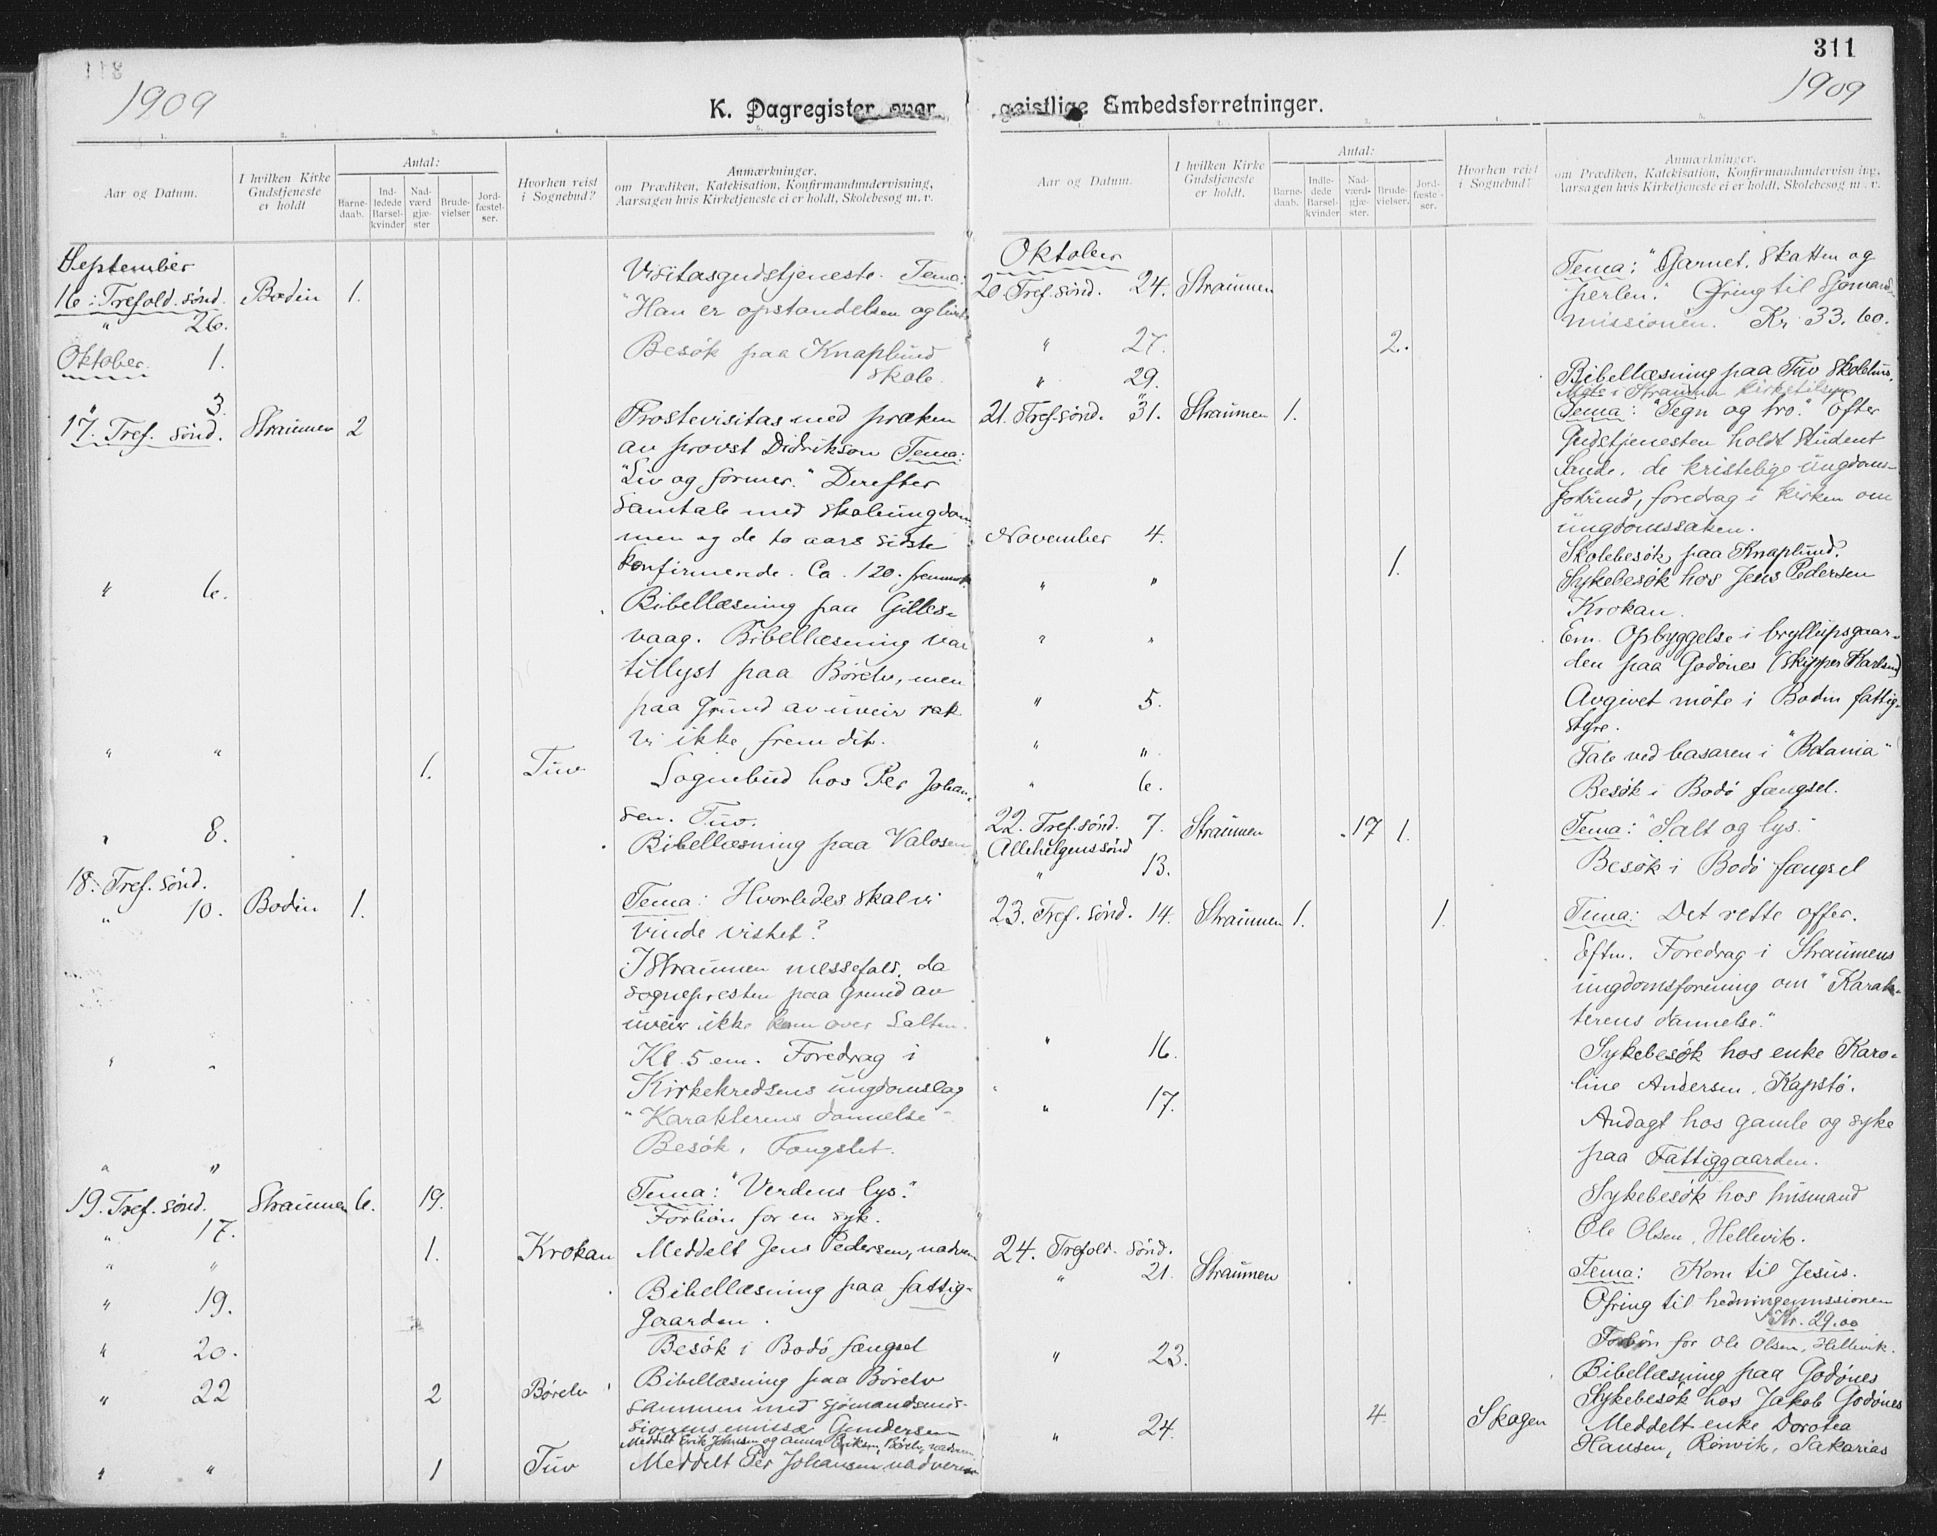 311
1909
1909
K. Dagregister over geistlige Embedsforretninger.
Aar og Datum.
I hvilken Kirke Gudstjeneste er holdt
Antal:
Barne-daab.
Ind-ledede Barsel-kvinder
Nad-værd gjæ-ster
Brude-vielser
Jord-fæstel-ser.
Hvorhen reist i Sognebud?
Anmærkninger.
om Prædiken, Katekisation, Konfirmandundervisning,
Aarsagen hvis Kirketjeneste ei er holdt, Skolebesøg m. v.
September
16. Trefold. sønd. Bodin 1. Visitasgudstjeneste. Tema:
" 26. "Han er opstandelsen og livet.
Oktober 1. Besøk paa Knaplund
skole.
" 3.
17. Tref. sønd. Straumen 2 Prostevisitas med præken
av provst Didrikson Tema:
"Liv og former." Derefter
samtale med skoleungdom-
men og de to aars sidste
konfirmerede. Ca. 120. fremmøtt.
" 6. Bibellæsning paa Gilles-
vaag. Bibellæsning var
tillyst paa Børelv, men
paa grund av uveir rak
vi ikke frem dit.
" " 1. Tuv Sognebud hos Per Johan-
sen. Tuv.
" 8. Bibellæsning paa Valosen
18. Tref. sønd.
" 10. Bodin 1. Tema: Hvorledes skal vi
vinde vished?
I Straumen messefald, da
sognepresten paa grund av
uveir ikke kom over Salten.
" " Kl. 5 em. Foredrag i
Kirkekredsens ungdomslag
"Karakterens dannelse".
" " Besøk i Fængslet.
19. Tref. sønd. Straumen 6. 19. Tema: "Verdens lys."
" 17. Forbøn for en syk.
" " 1. Krokan Meddelt Jens Pedersen, nadveren
" 19. Bibellæsning paa fattig-
gaarden.
" 20. Besøk i Bodø fængsel
" 22 2 Børelv Bibellæsning paa Børelv
sammen med sjømandsmis-
sionens emissær Gundersen
Meddelt Erik Johnsen og Anna Eriksen, Børelv, nadveren
" " 1 Tuv Meddelt Per Johansen nadveren
Aar og Datum.
I hvilken Kirke Gudstjeneste er holdt.
Antal:
Barne-daab.
Indle-dede Barsel-kvinder
Nad-værd-gjæ-ster.
Brude-vielser.
Jord-fæstel-ser.
Hvorhen reist i Sognebud?
Anmærkninger.
om Prædiken, Katekisation, Konfirmandundervisning,
Aarsagen hvis Kirketjeneste ei er holdt, Skolebesøg m. v.
Oktober
20. Tref. sønd. 24. Straumen Tema: "Garnet, skatten og
perlen." Ofring til Sjømands-
missionen. Kr. 33.60.
" 27. 2.
" 29. Bibellæsning paa Tuv skolehus.
Møte i Straumen kirketilsyn
21. Tref. sønd. 31. Straumen 1. Tema: "Tegn og tro." Efter
Gudstjenesten holdt student
Sande, de kristelige ungdoms-
forbund, foredrag i kirken om
ungdomssaken.
November 4. Skolebesøk paa Knaplund.
" " 1. Sykebesøk hos Jens Pedersen
Krokan.
" " Em. Opbyggelse i bryllupsgaar-
den paa Godønes (skipper Karlsen)
" 5. Avgivet møte i Bodin fattig-
styre.
" " Tale ved basaren i "Betania"
" 6. Besøk i Bodø fængsel.
22. Tref. sønd. 7. Straumen 17 1. Tema: "Salt og lys."
Allehelgenssønd
" 13. Besøk i Bodø fængsel
23. Tref. sønd. 14. Straumen 1. 1. Tema: Det rette offer.
Eftm. Foredrag i Straumens
ungdomsforening om "Karak-
terens dannelse."
" 16. Sykebesøk hos enke Karo-
line Andersen, Kapstø.
" 17. Andagt hos gamle og syke
paa Fattiggaarden.
Sykebesøk hos husmand
Ole Olsen, Hellevik.
24. Trefold. sønd.
" 21. Straumen Tema: Kom til Jesus.
Ofring til hedningemissionen
Kr. 29.00
Forbøn for Ole Olsen, Hellevik.
" 23. Bibellæsning paa Godønes
Sykebesøk hos Jakob Godønes
" 24. 4. Skagen Meddelt enke Dorotea
Hansen, Rønvik, Sakarias